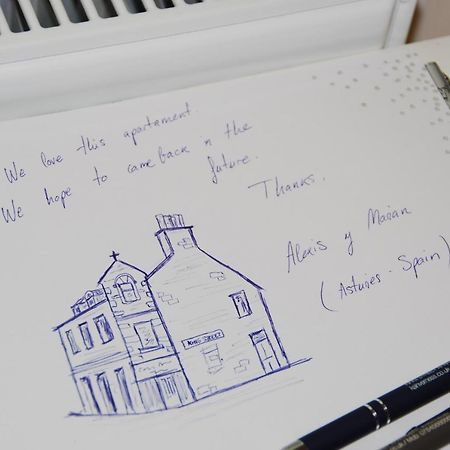 We love this apartament.
We hope to came back in the
future.
Thanks.
Alexis y Marian
(Asturies - Spain)